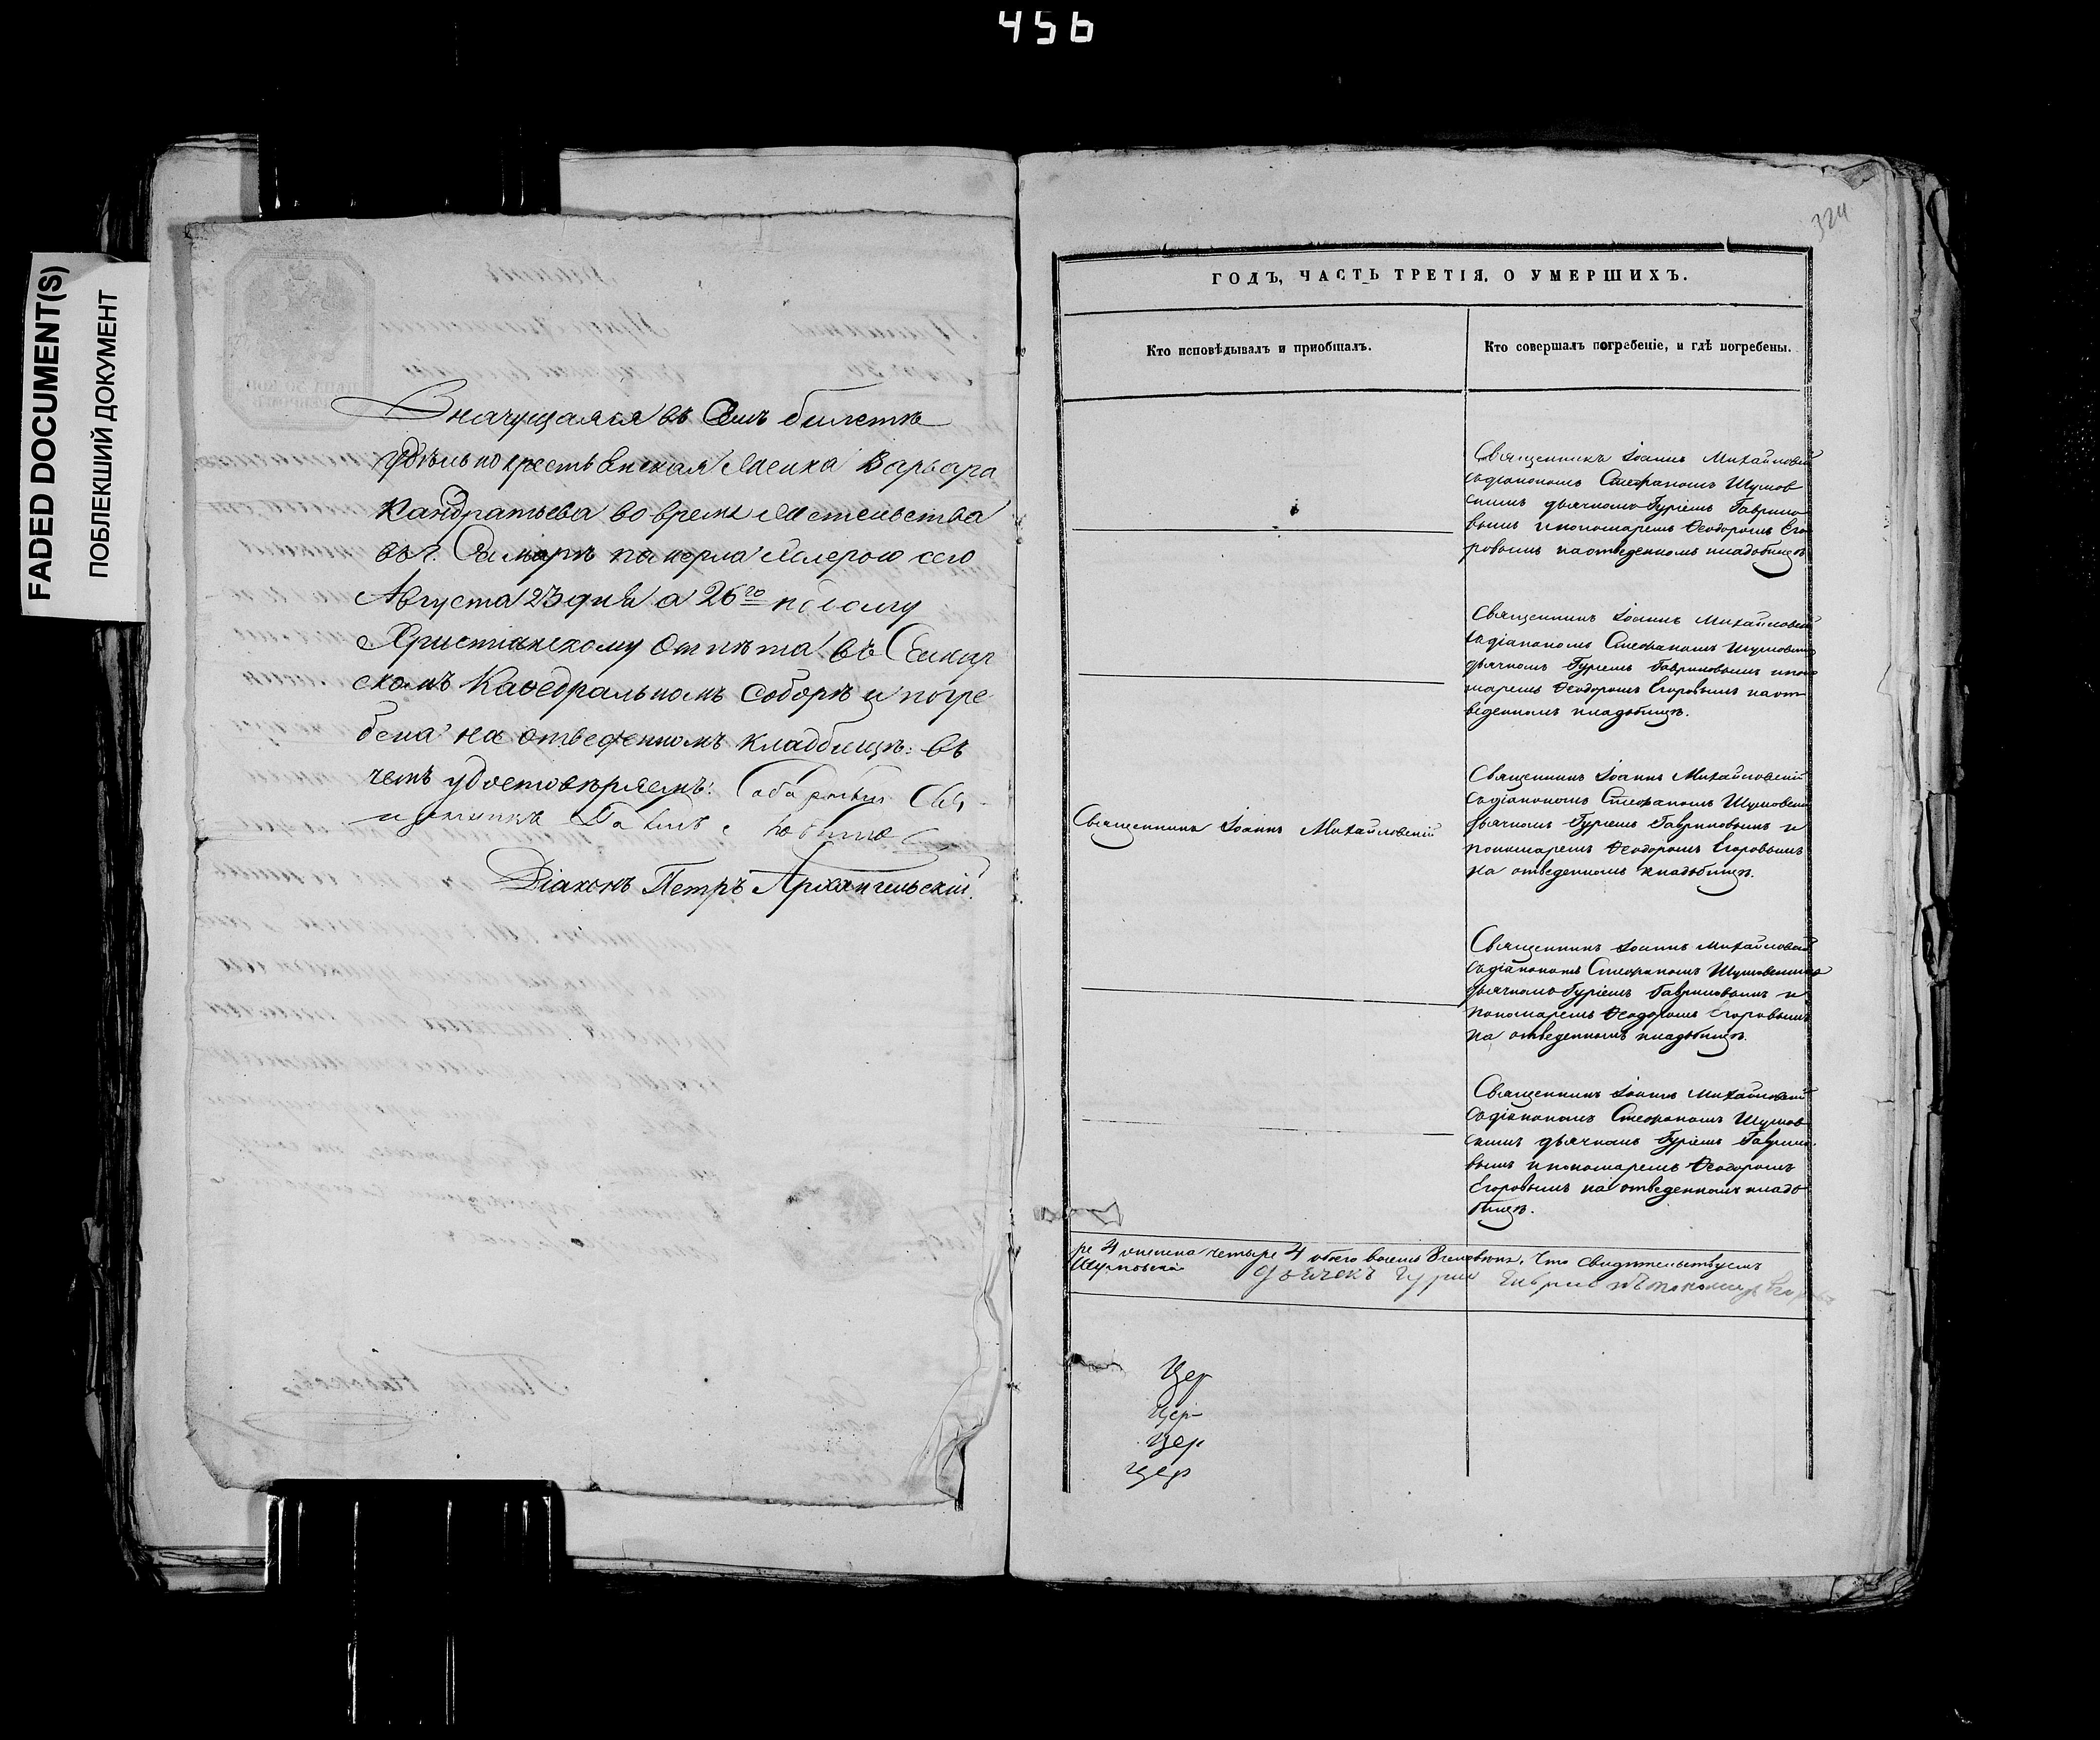 456
FADED DOCUMENT(S)
ПОБЛЕКШИЙ ДОКУМЕНТ
Значущаяся въ Семъ билетѣ
Удѣльно крестьянская Женка Варвара
Кандратьева во время жительства
въ г. Самарѣ померла холерою сего
Августа 23 дня а 26го по долгу
Христианскому отпѣта въ Самар
скомъ Каѳедральномъ Соборѣ и погре
бена на отведенномъ кладбищѣ: въ
чемъ удостовѣряемъ: Соборный Свя
щенникъ Павелъ
Діаконъ Петръ Архангельскій.
324
ГОДЪ, ЧАСТЬ ТРЕТІЯ, О УМЕРШИХЪ.
Кто исповѣдывалъ и пріобщалъ.
Кто совершалъ погребеніе, и гдѣ погребены.
Священникъ Іоаннъ Михайловскій
съ діакономъ Стефаномъ Шумов
скимъ дьячкомъ Гуріемъ Гаврило
вымъ и пономаремъ Ѳеодоромъ Его
ровымъ на отведенномъ кладбищѣ
Священникъ Іоаннъ Михайловскій
съ діакономъ Стефаномъ Шумовскимъ
дьячкомъ Гуріемъ Гавриловымъ и поно
маремъ Ѳеодоромъ Егоровымъ на от
веденномъ кладбищѣ.
Священникъ Іоаннъ Михайловскій
Священникъ Іоаннъ Михайловскій
съ діакономъ Стефаномъ Шумовскимъ
дьячкомъ Гуріемъ Гавриловымъ и
пономаремъ Ѳеодоромъ Егоровымъ
на отведенномъ кладбищѣ.
Священникъ Іоаннъ Михайловскій
съ діакономъ Стефаномъ Шумовскимъ
дьячкомъ Гуріемъ Гавриловымъ и
пономаремъ Ѳеодоромъ Егоровымъ
на отведенномъ кладбищѣ.
Священникъ Іоаннъ Михайловскій
съ діакономъ Стефаномъ Шумов
скимъ дьячкомъ Гуріемъ Гаврило
вымъ и пономаремъ Ѳеодоромъ
Егоровымъ на отведенномъ кладб
бищѣ.
ре 4 женска четыре 4 обоего восемь 8 человѣкъ, Что свидѣтельствуемъ
Шумовскій дьячекъ Гурій Гавриловъ пономарь
Цер
Цер
Цер
Цер